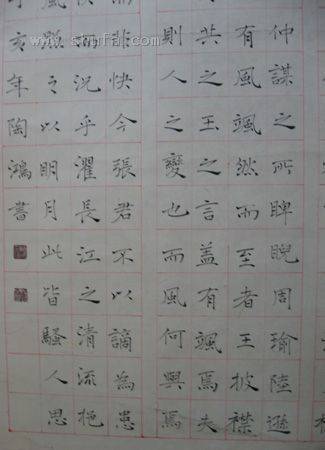 仲謀之所睥睨周瑜陸遜
有風颯然而至者王披襟
共之玉之言盖有颯焉夫
則人之變也而風何興焉
非快今張君不以謫為患
而況乎濯長江之清流挹
照之以明月此皆騷人思
亥年陶鴻書